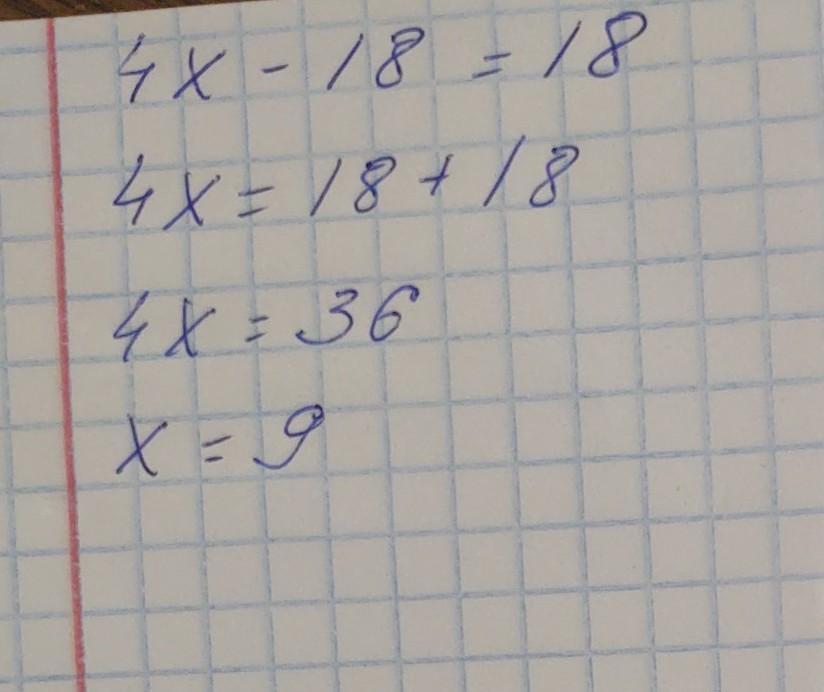 4x - 18 = 18
4x = 18 + 18
4x = 36
x = 9